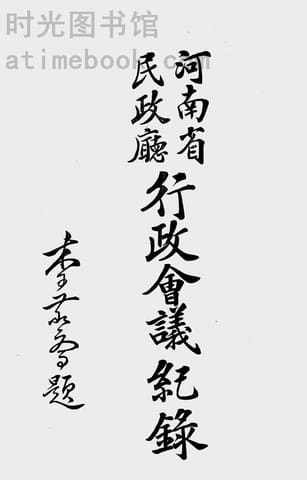 时光图书馆
atimebook.com
河南省
民政廳
行政會議紀錄
李敬齋題